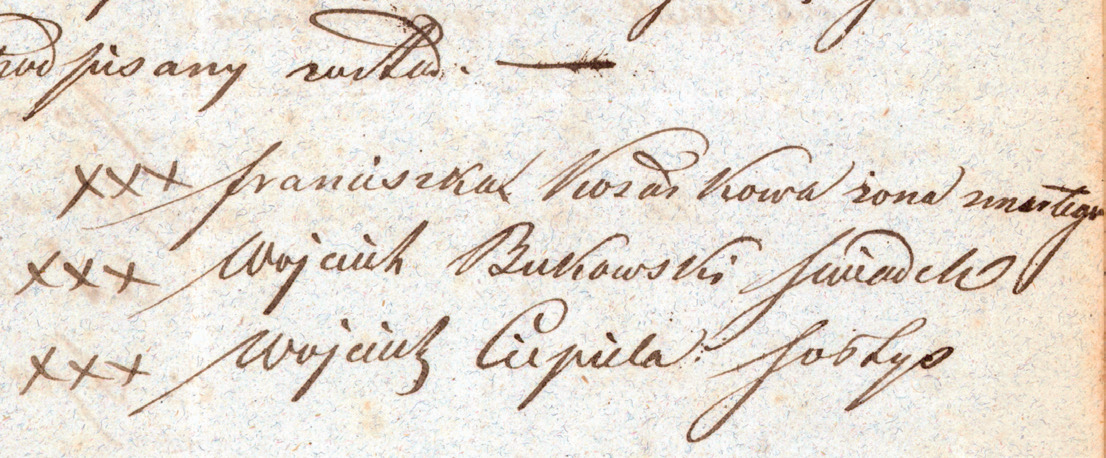 podpisany został. —
xxx franciszka Kozdrkowa żona zmarłego
xxx Wojciech Bukowski świadek
xxx Wojciech Ciepiela sołtys